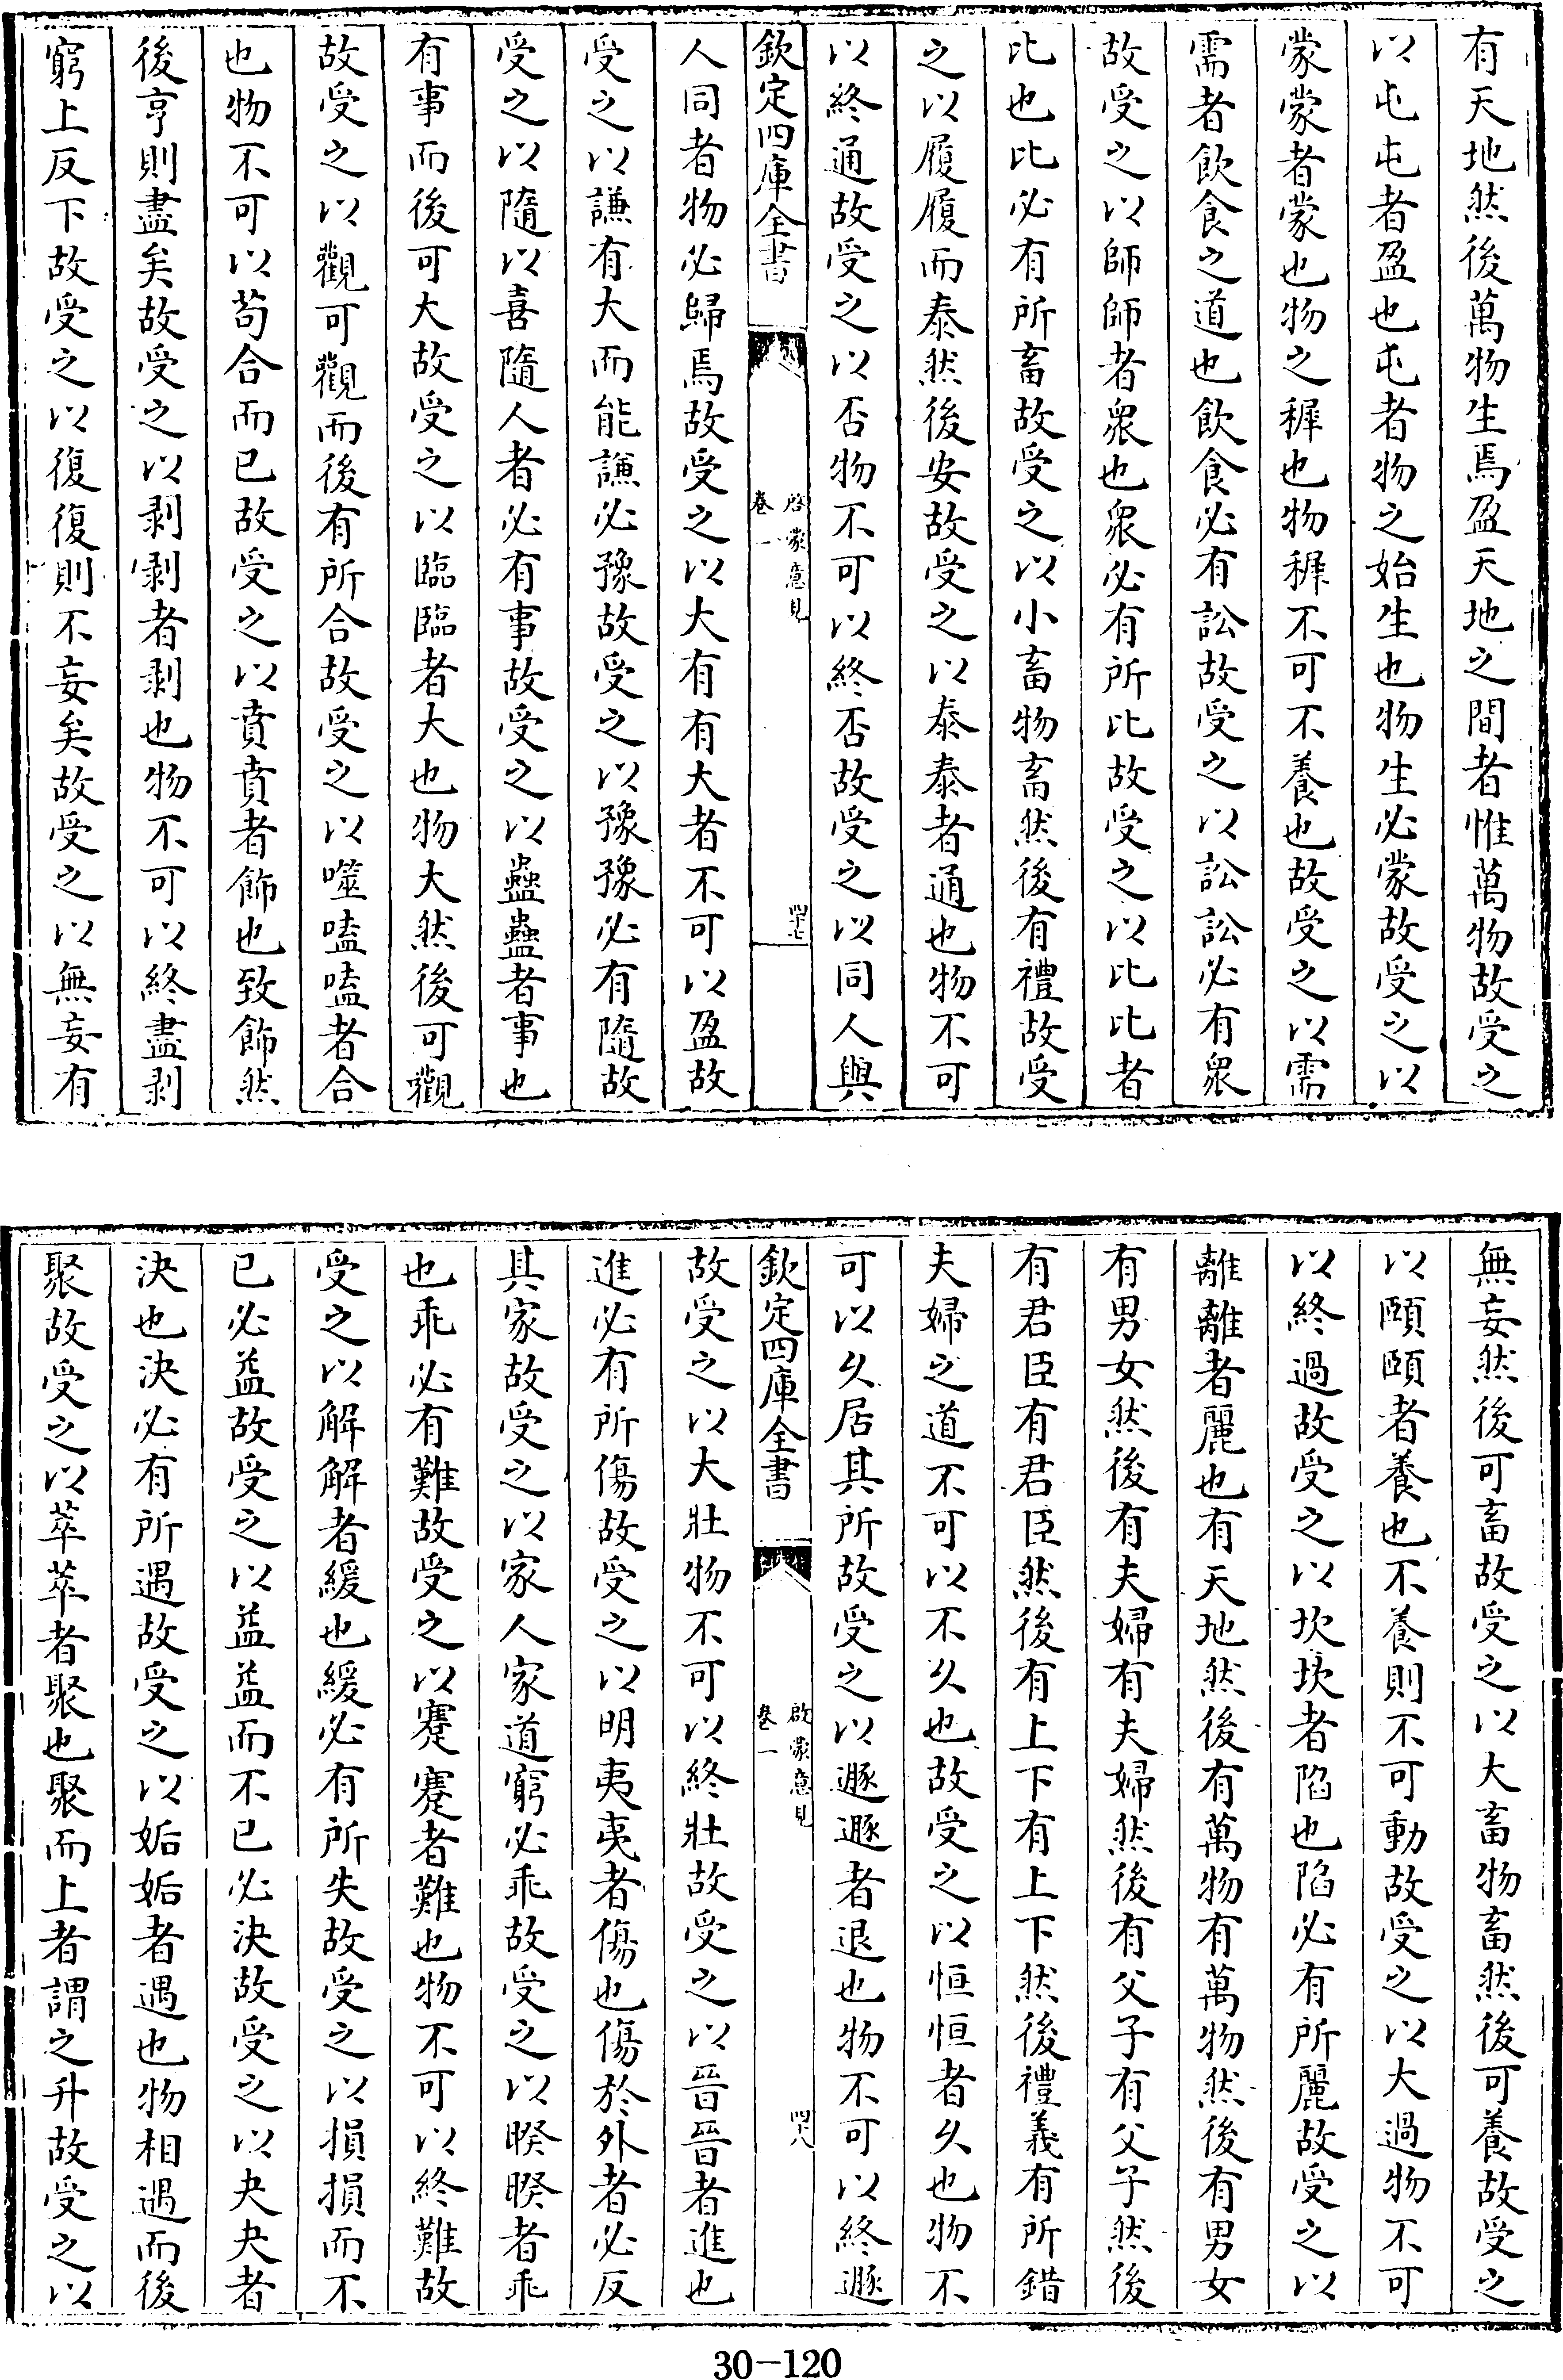 有天地然後萬物生焉盈天地之間者惟萬物故受之
以屯屯者盈也屯者物之始生也物生必蒙故受之以
蒙蒙者蒙也物之穉也物穉不可不養也故受之以需
需者飲食之道也飲食必有訟故受之以訟訟必有衆
故受之以師師者衆也衆必有所比故受之以比比者
比也比必有所畜故受之以小畜物畜然後有禮故受
之以履履而泰然後安故受之以泰泰者通也物不可
以終通故受之以否物不可以終否故受之以同人與
欽定四庫全書
啓蒙意見
卷一
四十七
人同者物必歸焉故受之以大有有大者不可以盈故
受之以謙有大而能謙必豫故受之以豫豫必有隨故
受之以隨以喜隨人者必有事故受之以蠱蠱者事也
有事而後可大故受之以臨臨者大也物大然後可觀
故受之以觀可觀而後有所合故受之以噬嗑嗑者合
也物不可以苟合而已故受之以賁賁者飾也致飾然
後亨則盡矣故受之以剥剥者剥也物不可以終盡剥
窮上反下故受之以復復則不妄矣故受之以無妄有
無妄然後可畜故受之以大畜物畜然後可養故受之
以頤頤者養也不養則不可動故受之以大過物不可
以終過故受之以坎坎者陷也陷必有所麗故受之以
離離者麗也有天地然後有萬物有萬物然後有男女
有男女然後有夫婦有夫婦然後有父子有父子然後
有君臣有君臣然後有上下有上下然後禮義有所錯
夫婦之道不可以不久也故受之以恒恒者久也物不
可以久居其所故受之以遯遯者退也物不可以終遯
欽定四庫全書
啟蒙意見
卷一
四十八
故受之以大壯物不可以終壯故受之以晉晉者進也
進必有所傷故受之以明夷夷者傷也傷於外者必反
其家故受之以家人家道窮必乖故受之以睽睽者乖
也乖必有難故受之以蹇蹇者難也物不可以終難故
受之以解解者緩也緩必有所失故受之以損損而不
已必益故受之以益益而不已必決故受之以夬夬者
決也決必有所遇故受之以姤姤者遇也物相遇而後
聚故受之以萃萃者聚也聚而上者謂之升故受之以
30-120